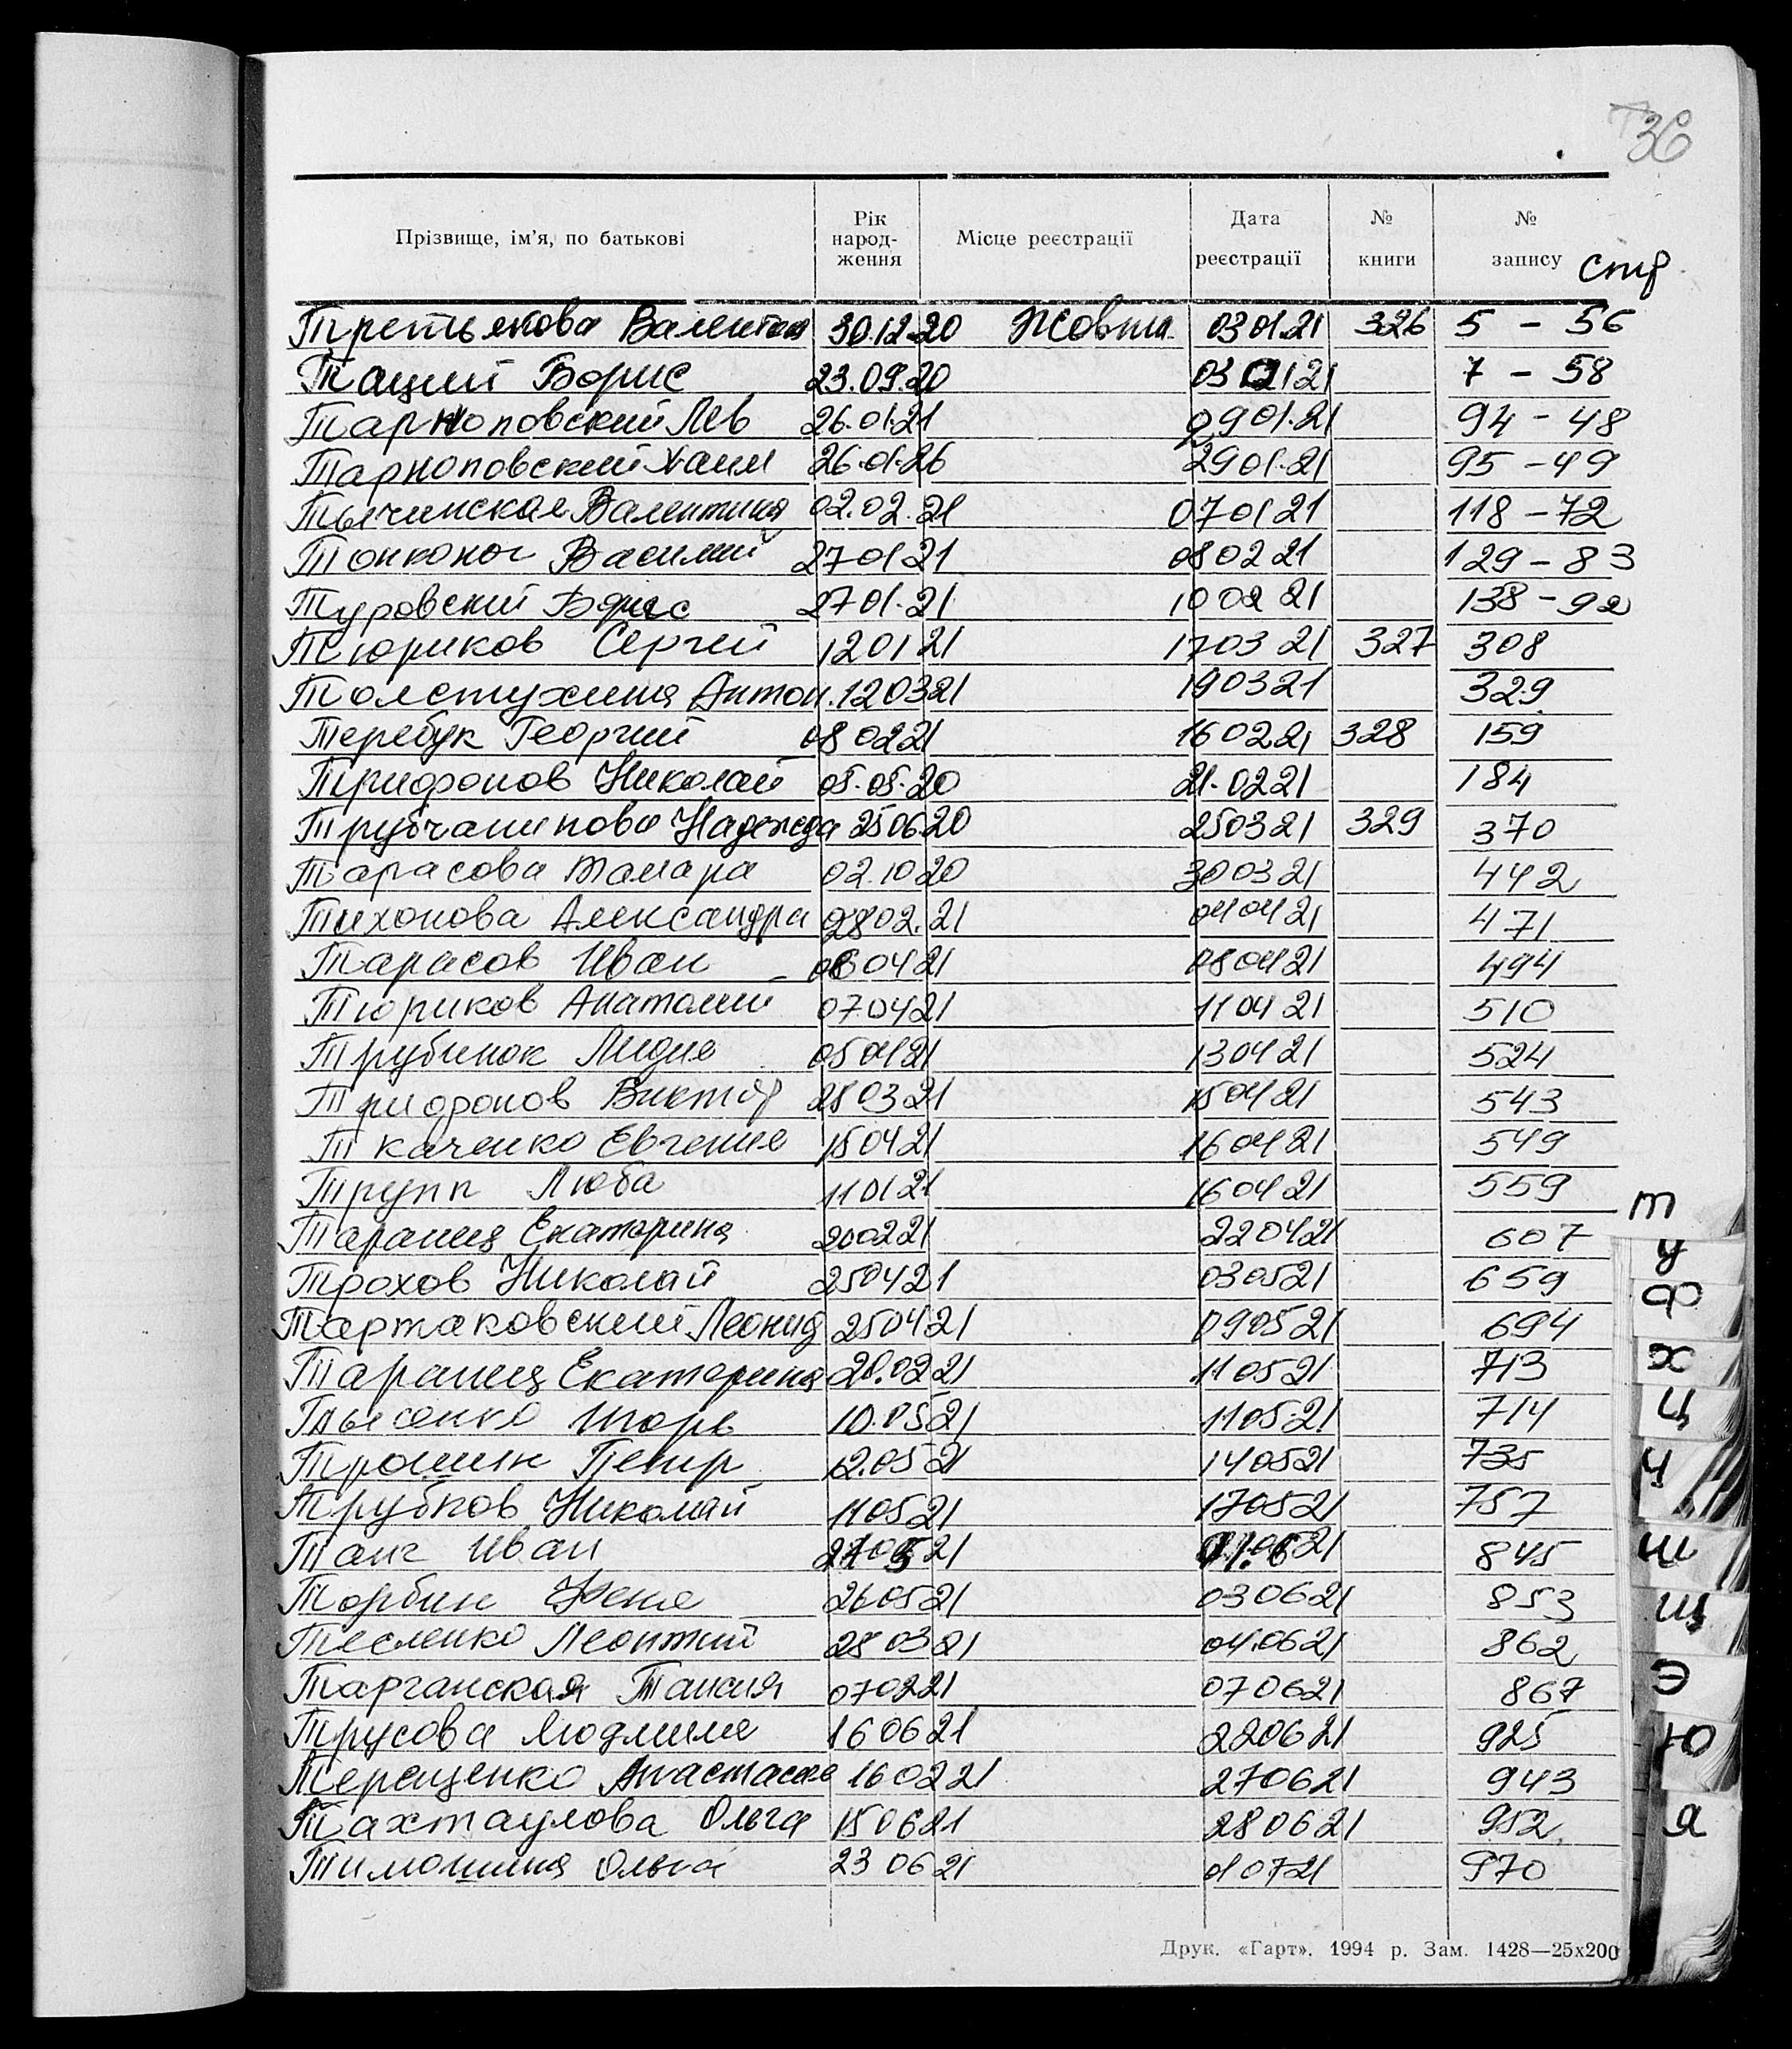 36
Прізвище, ім'я, по батькові Рік народ-ження Місце реєстрації Дата реєстрації № книги № запису стр
Третьякова Валентин 30.12.20 Жовтн. 03 01.21 326 5 - 56
Таций Борис 23.09.20 03 01 21 7 - 58
Тарноповский Лев 26.01.21 0901.21 94 - 48
Тарноповский Хаим 26.01.26 2901.21 95 - 49
Тычинская Валентина 02.02.21 070121 118 - 72
Тонконог Василий 270121 080221 129 - 83
Туровский Борис 2701.21 100221 138 - 92
Тюриков Сергей 120121 170321 327 308
Толстухина Антон. 120321 190321 329
Теребук Георгий 080221 160221 328 159
Трифонов Николай 05.05.20 21.0221 184
Трубчанинова Надежда 250620 250321 329 370
Тарасова Тамара 02.1020 300321 442
Тихонова Александра 2802.21 040421 471
Тарасов Иван 060421 080421 494
Тюриков Анатолий 070421 110421 510
Трубинок Лидия 050421 130421 524
Трифонов Виктор 280321 150421 543
Ткаченко Евгения 150421 160421 549
Трупп Люба 110121 160421 559
Таранец Екатерина 200221 220421 607
Трохов Николай 250421 030521 659
Тартаковский Леонид 250421 090521 694
Таранец Екатерина 20.0221 110521 713
Игорь 10.0521 110521 714
Трошин Петр 12.0521 140521 735
Трубков Николай 110521 170521 757
Танг Иван 845
Торбин Женя 260521 030621 853
Тесленко Леонтий 280321 040621 862
Тарганская Таисия 070221 070621 867
Трусова Людмила 160621 220621 925
Терещенко Анастасия 160221 270621 943
Тахтаулова Ольга 150621 280621 952
Тимошина Ольга 230621 010721 970
Т
У
Ф
Х
Ц
Ч
Ш
Щ
Э
Ю
Я
Друк. «Гарт». 1994 р. Зам. 1428—25х200